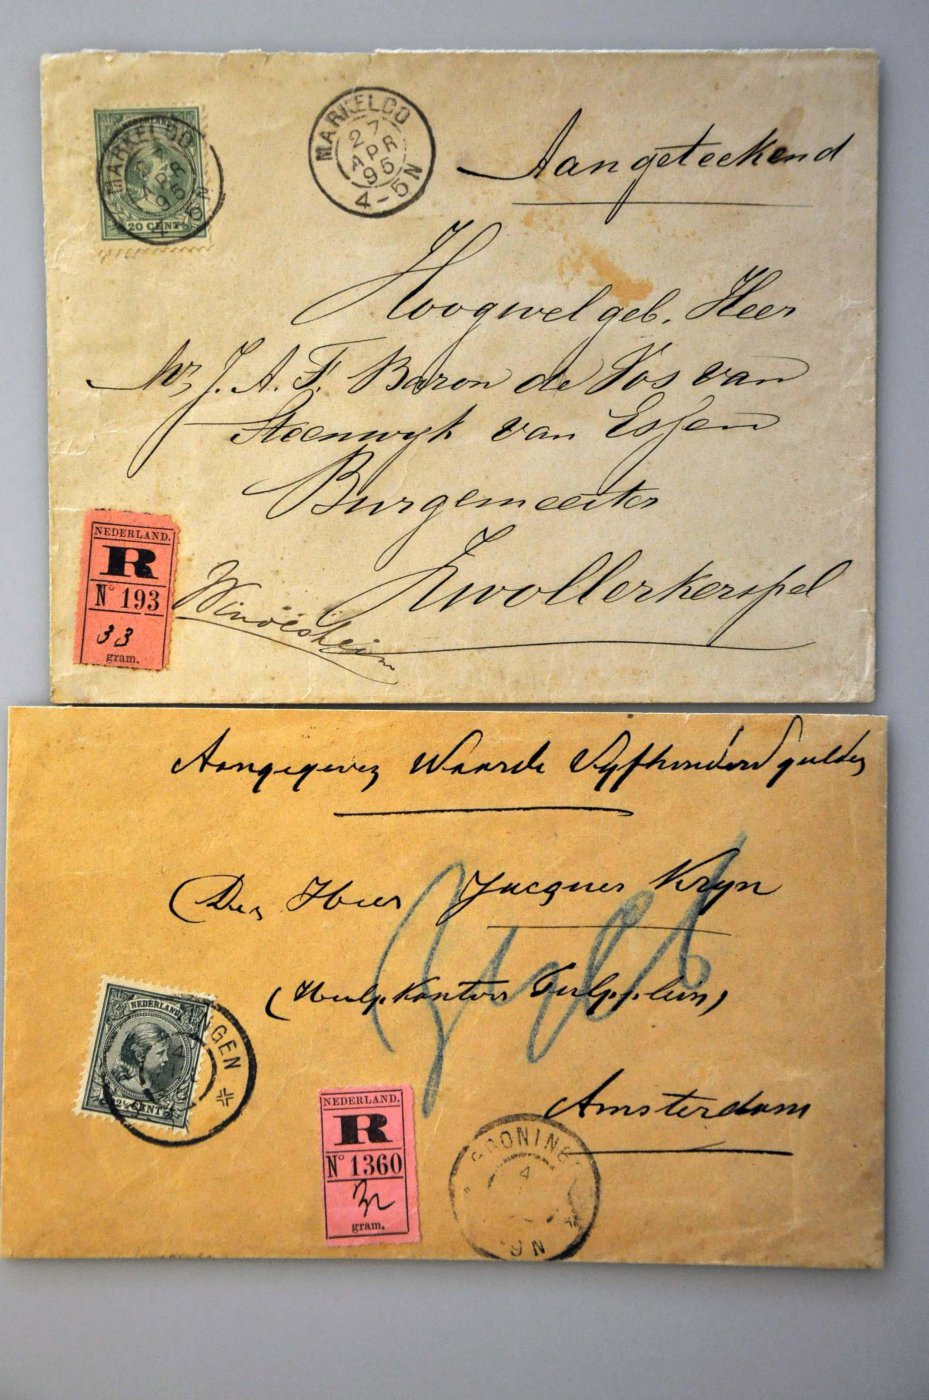 MARKELOO
20 CENT
MARKELOO
27
APR
95
4-5N
Aangeteekend
Hoogwelgeb. Heer
Mr J. A. F. Baron de Vos van
Steenwyk van Essen
Burgemeester
Zwollerkerspel
Windesheim
NEDERLAND.
R
No 193
33
gram.
Aangegeven Waarde Vyfhonderd gulden
Den Heer Jacques Kryn
(Hulpkantoor Tulpplein)
Amsterdam
NEDERLAND
CENT
NGEN
NEDERLAND.
R
No 1360
gram.
GRONING
4
9N